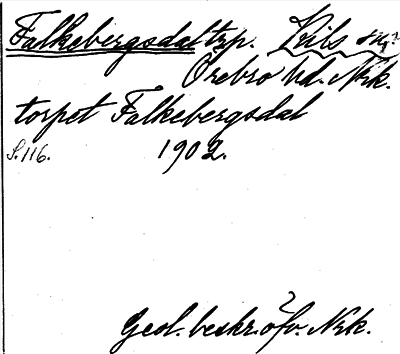 Falkebergsdal trp. Kils sn.
Örebro hd. Nrk.
torpet Falkebergsdal
S. 116. 1902.
Geol. beskr. öfv. Nrk.